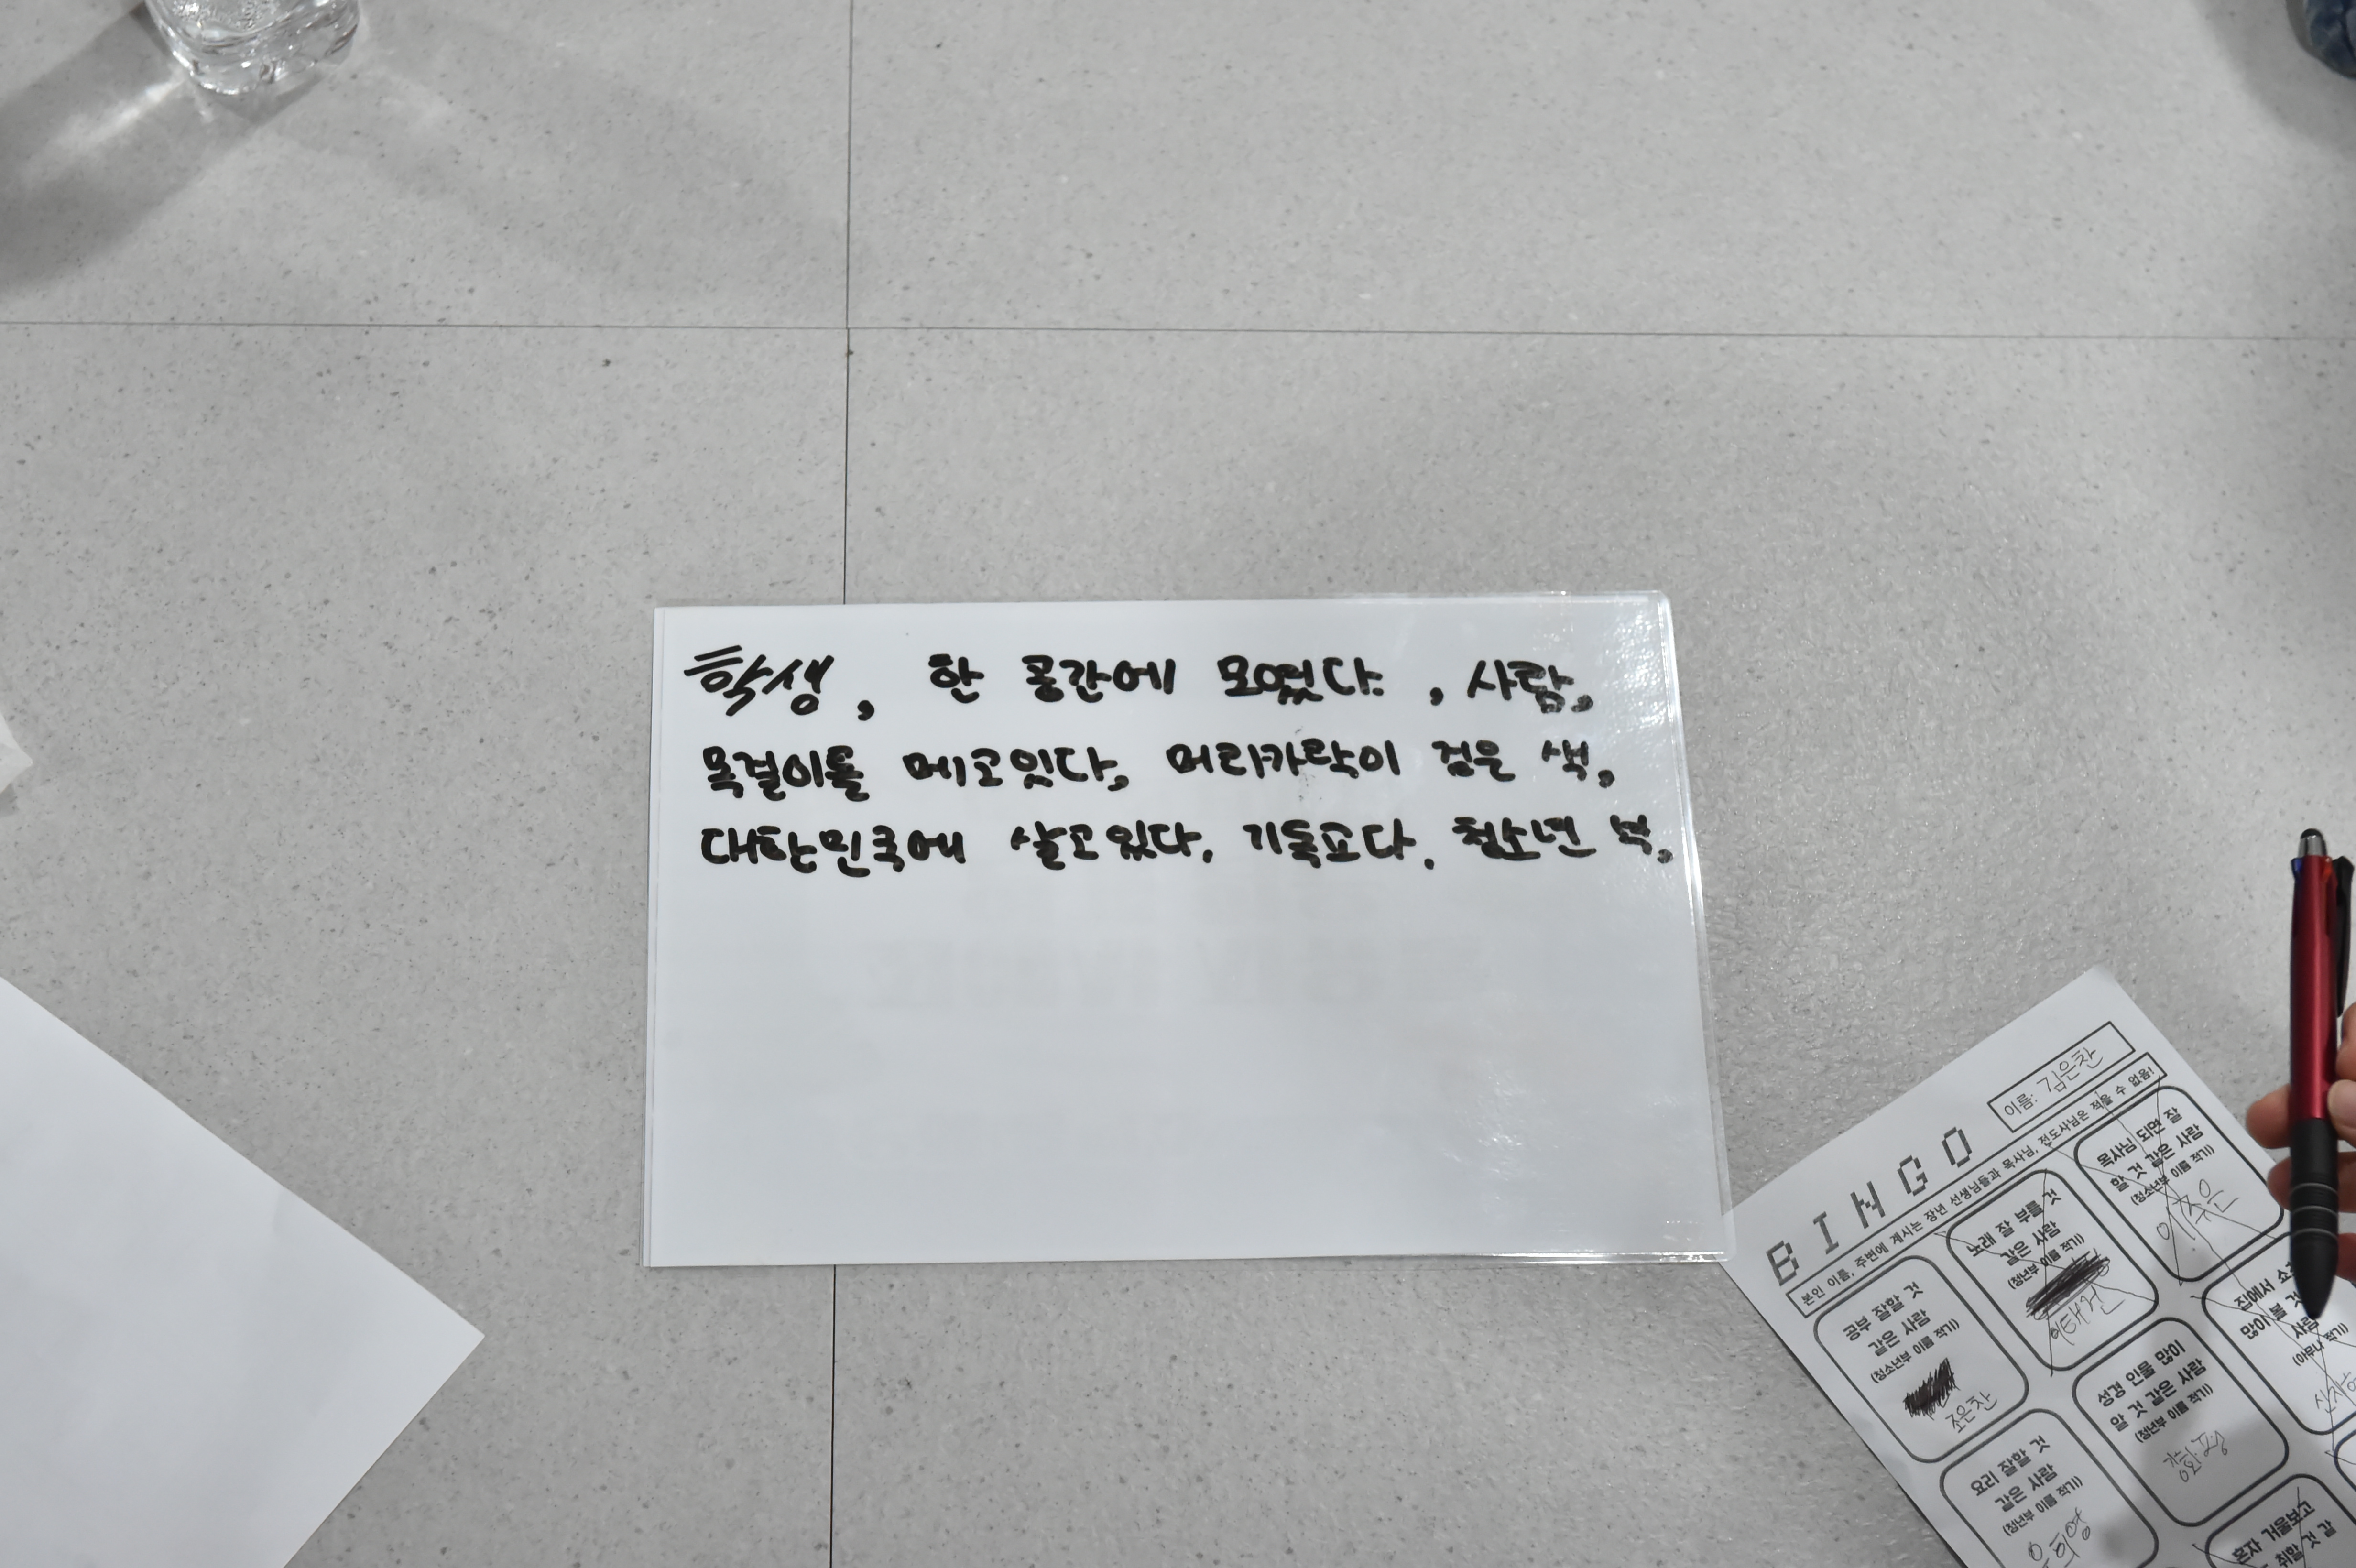 학생, 한 공간에 모였다. , 사람,
목걸이를 메고있다, 머리카락이 검은 색,
대한민국에 살고있다. 기독교다. 청소년 부,
이름: 김은찬
BINGO
본인 이름, 주변에 계시는 장년 선생님들과 목사님, 전도사님은 적을 수 없음!
공부 잘할 것
같은 사람
(청소년부 이름 적기)
조은찬
노래 잘 부를 것
같은 사람
(청년부 이름 적기)
이태건
목사님 되면 잘
할 것 같은 사람
(청소년부 이름 적기)
이주은
요리 잘할 것
같은 사람
(청년부 이름 적기)
성경 인물 많이
알 것 같은 사람
(청년부 이름 적기)
집에서
많이 볼 것
사람
(아무나 적기)
혼자 거울보고
취할 것 같